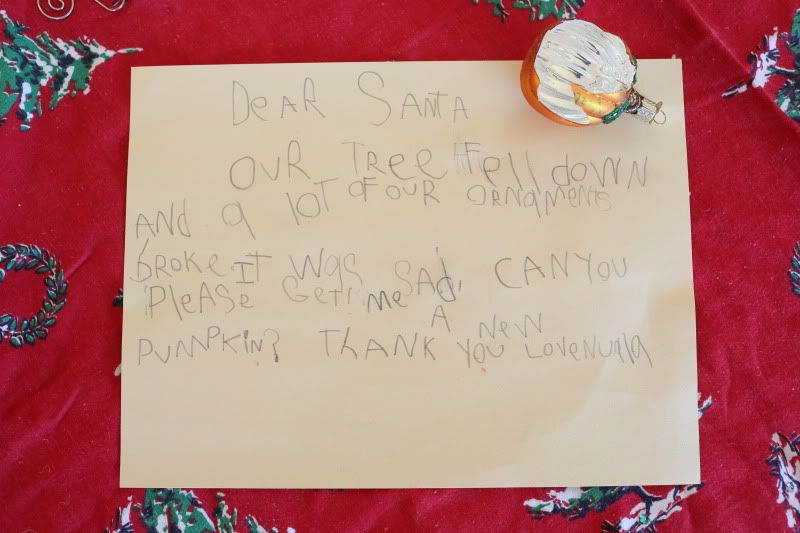 DEAR SANTA
OUR TREE FEll dOWN
ANd A lOT OF OUR ORNAMENTS
bROKE. IT WAS SAd. CAN YOU
PLEASE GET ME A NEW
PUMPKIN? THANK YOU LOVE NUAlA